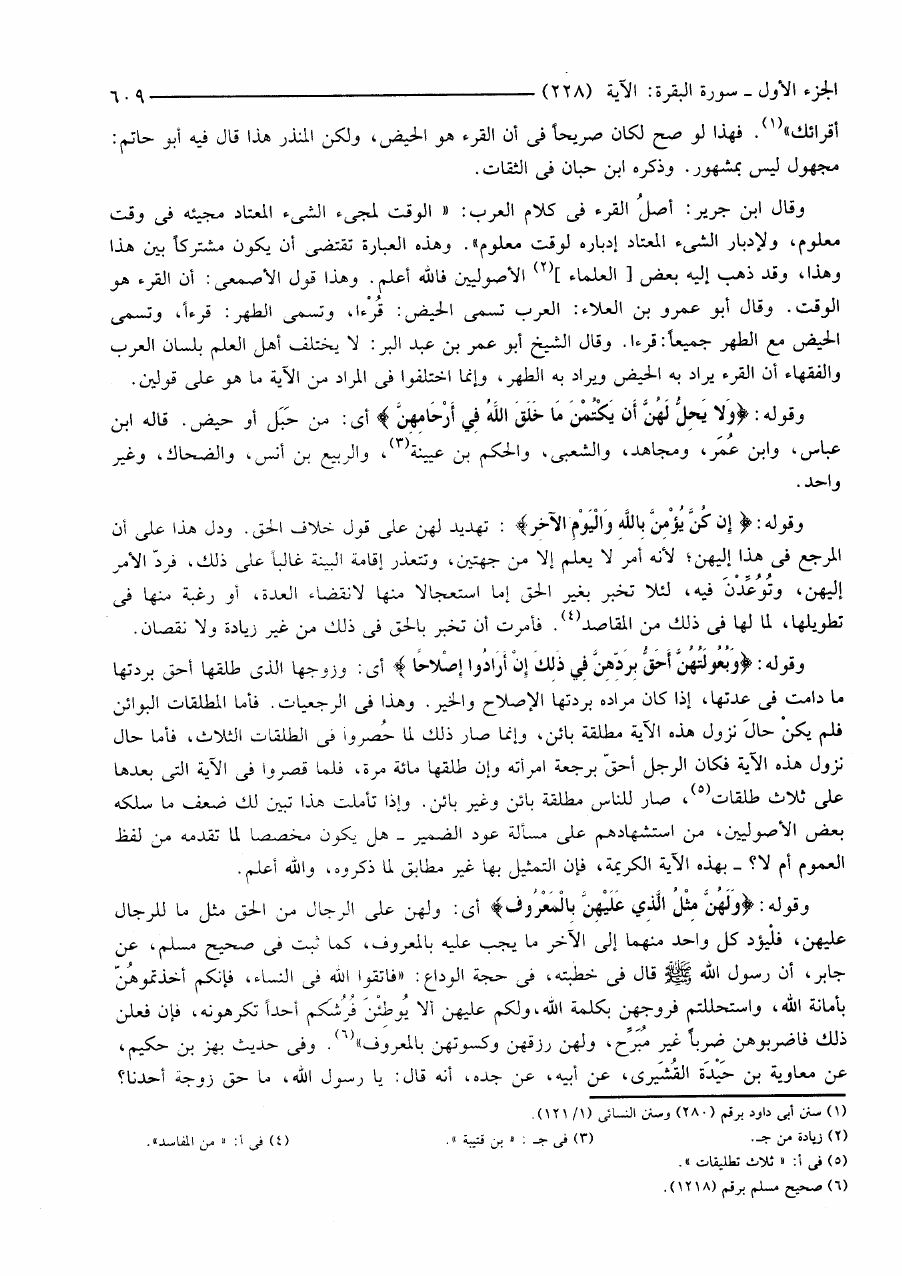 الجزء الأول ـ سورة البقرة: الآية (٢٢٨) ٦٠٩
أقرائك»(١). فهذا لو صح لكان صريحاً فى أن القرء هو الحيض، ولكن المنذر هذا قال فيه أبو حاتم:
مجهول ليس بمشهور. وذكره ابن حبان فى الثقات.
وقال ابن جرير: أصلُ القرء فى كلام العرب: « الوقت لمجىء الشىء المعتاد مجيئه فى وقت
معلوم، ولإدبار الشىء المعتاد إدباره لوقت معلوم». وهذه العبارة تقتضى أن يكون مشتركاً بين هذا
وهذا، وقد ذهب إليه بعض [ العلماء ](٢) الأصوليين فالله أعلم. وهذا قول الأصمعى: أن القرء هو
الوقت. وقال أبو عمرو بن العلاء: العرب تسمى الحيض: قُرْءا، وتسمى الطهر: قرءاً، وتسمى
الحيض مع الطهر جميعاً:قرءا. وقال الشيخ أبو عمر بن عبد البر: لا يختلف أهل العلم بلسان العرب
والفقهاء أن القرء يراد به الحيض ويراد به الطهر، وإنما اختلفوا فى المراد من الآية ما هو على قولين.
وقوله: ﴿وَلا يَحِلُّ لَهُنَّ أَن يَكْتُمْنَ مَا خَلَقَ اللَّهُ فِي أَرْحَامِهِنَّ ﴾ أى: من حَبَل أو حيض. قاله ابن
عباس، وابن عُمَر، ومجاهد، والشعبى، والحكم بن عيينة(٣)، والربيع بن أنس، والضحاك، وغير
واحد.
وقوله: ﴿ إِن كُنَّ يُؤْمِنَّ بِاللَّهِ وَالْيَوْمِ الآخِرِ﴾ : تهديد لهن على قول خلاف الحق. ودل هذا على أن
المرجع فى هذا إليهن؛ لأنه أمر لا يعلم إلا من جهتين، وتتعذر إقامة البينة غالباً على ذلك، فردّ الأمر
إليهن، وتُوُعِّدْنَ فيه، لئلا تخبر بغير الحق إما استعجالا منها لانقضاء العدة، أو رغبة منها فى
تطويلها، لما لها فى ذلك من المقاصد(٤). فأمرت أن تخبر بالحق فى ذلك من غير زيادة ولا نقصان.
وقوله: ﴿وَبُعُولَتُهُنَّ أَحَقُّ بِرَدِّهِنَّ فِي ذَلِكَ إِنْ أَرَادُوا إِصْلاحًا ﴾ أى: وزوجها الذى طلقها أحق بردتها
ما دامت فى عدتها، إذا كان مراده بردتها الإصلاح والخير. وهذا فى الرجعيات. فأما المطلقات البوائن
فلم يكنْ حالَ نزول هذه الآية مطلقة بائن، وإنما صار ذلك لما حُصروا فى الطلقات الثلاث، فأما حال
نزول هذه الآية فكان الرجل أحقّ برجعة امرأته وإن طلقها مائة مرة، فلما قصروا فى الآية التى بعدها
على ثلاث طلقات(٥)، صار للناس مطلقة بائن وغير بائن. وإذا تأملت هذا تبين لك ضعف ما سلكه
بعض الأصوليين، من استشهادهم على مسألة عود الضمير ـ هل يكون مخصصا لما تقدمه من لفظ
العموم أم لا؟ ـ بهذه الآية الكريمة، فإن التمثيل بها غير مطابق لما ذكروه، والله أعلم.
وقوله: ﴿وَلَهُنَّ مِثْلُ الَّذِي عَلَيْهِنَّ بِالْمَعْرُوفِ﴾ أى: ولهن على الرجال من الحق مثل ما للرجال
عليهن، فلْيؤد كل واحد منهما إلى الآخر ما يجب عليه بالمعروف، كما ثبت فى صحيح مسلم، عن
جابر، أن رسول الله ﷺ قال فى خطبته، فى حجة الوداع: «فاتقوا الله فى النساء، فإنكم أخذتموهُنّ
بأمانة الله، واستحللتم فروجهن بكلمة الله،ولكم عليهن ألا يُوطِئْنَ فُرُشَكم أحداً تكرهونه، فإن فعلن
ذلك فاضربوهن ضرباً غير مُبَرِّح، ولهن رزقهن وكسوتهن بالمعروف»(٦). وفى حديث بهز بن حكيم،
عن معاوية بن حَيْدَة القُشَيرى، عن أبيه، عن جده، أنه قال: يا رسول الله، ما حق زوجة أحدنا؟
(١) سنن أبى داود برقم (٢٨٠) وسنن النسائى (١/ ١٢١).
(٢) زيادة من جـ. (٣) فى جـ : « بن قتيبة ». (٤) فى أ: « من المفاسد».
(٥) فى أ: « ثلاث تطليقات ».
(٦) صحيح مسلم برقم (١٢١٨).